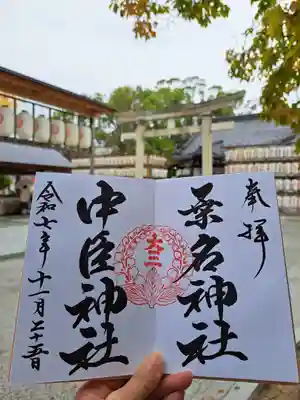 奉拝
桑名神社
大三
中臣神社
令和七年十一月二十五日